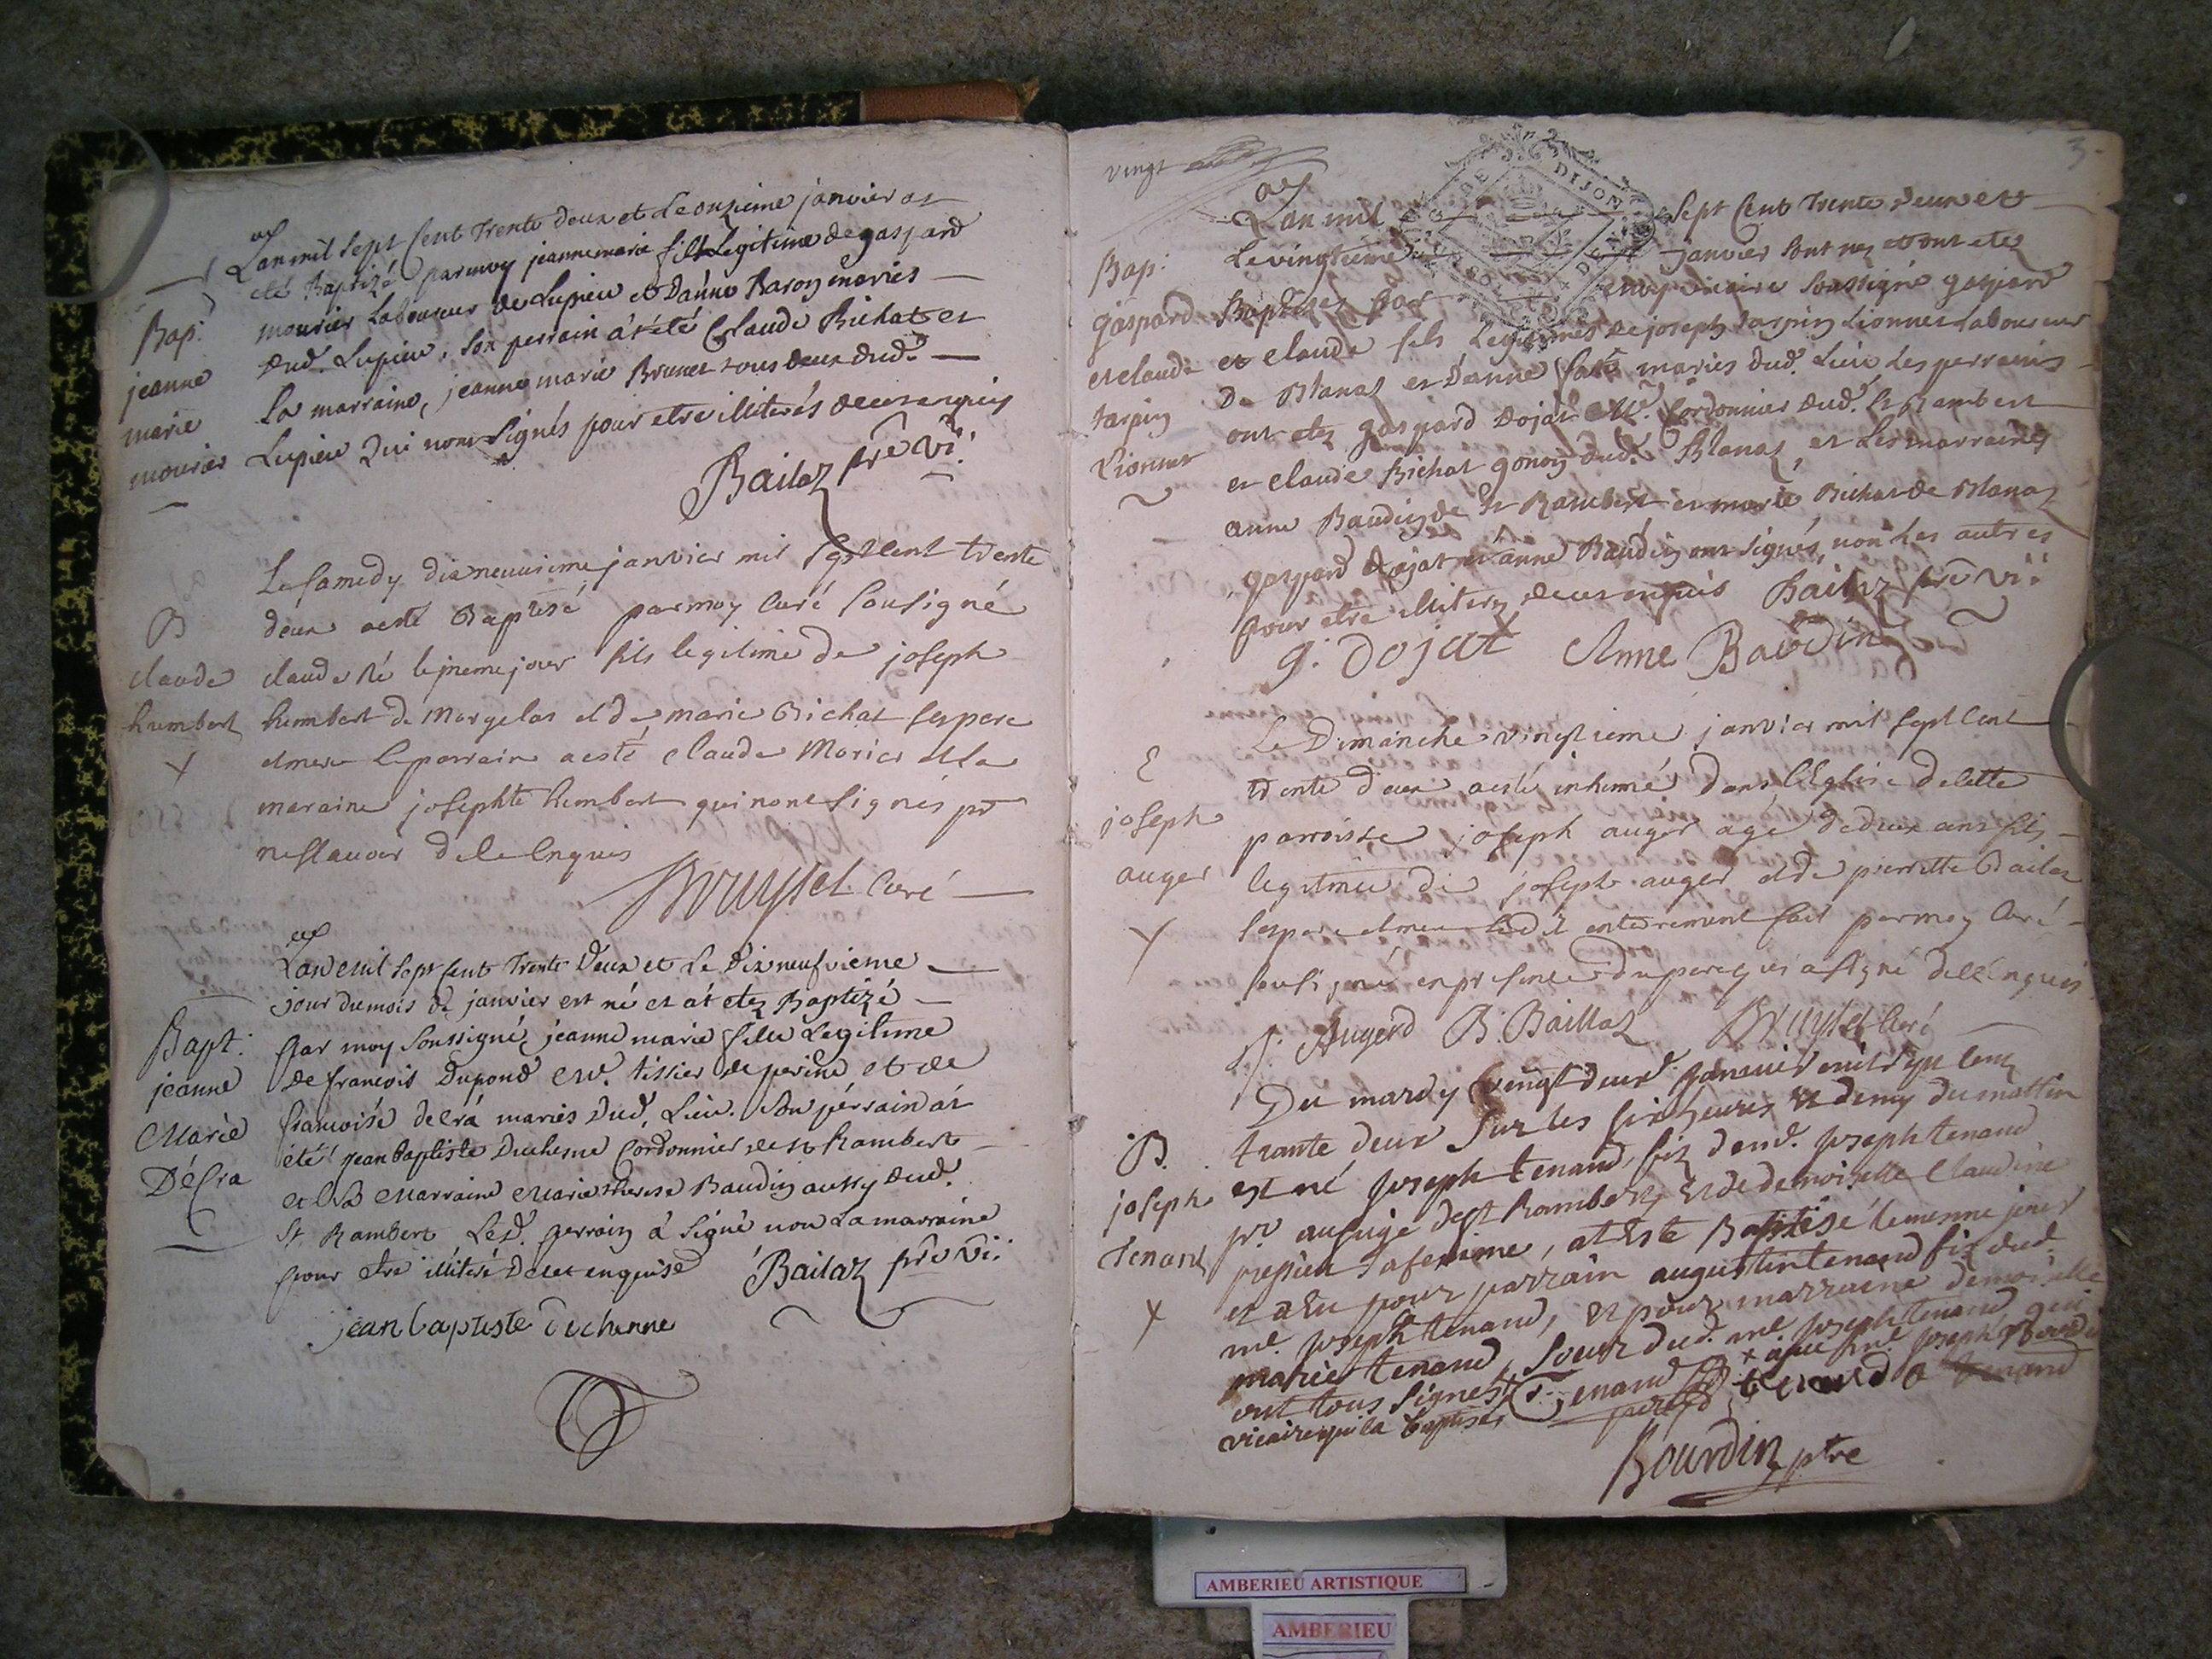 L'an mil sept cent trente deux et le onzieme janvier at
eté Baptizé par moy jeanne marie fille legitime de gaspard
mourier laboureur de Lupieu et d'anne Baron mariés
dud. Lupieu, son perrain a été Claude Bichat et
La marraine, jeanne marie Brunet tous deux dud.
Lupieu qui n'ont signés pour etre illiterés de ce enquis
Bailaz pre vi.
Bap:
jeanne
marie
mourier
Le samedy dixneuvieme janvier mil sept cent trente
deux a esté Baptisé par moy curé sousigné
claude né le meme jour fils legitime de joseph
humbert de Morgelas et de marie Bichat ses pere
et mere le parrain a esté claude Morier et la
maraine josephte humbert qui n'ont signés pr
ne sçavoir de ce enquis
Bruyset curé
B
claude
humbert
L'an mil sept cent trente deux et le dix neufvieme
jour du mois de janvier est né et at etez Baptizé
par moy soussigné, jeanne marie fille legitime
de francois Dupond tissier de et de
francoise decra mariés dud. Lieu. Son perrain at
été jean baptiste Duchesne Cordonnier de st Rambert
et la Marraine Marie therese Baudin aussy dud.
St. Rambert Led. perrain a signé non la marraine
pour etre illiteré de ce enquise Bailaz pre vi:
jean baptiste duchenne
Bapt:
jeanne
Marie
Décra
vingt
3
DE DIJON
L'an mil sept cent trente deux et
le vingtieme janvier sont nez et ont etez
Baptisez par moy vicaire soussigné gaspard
et claude fils legitimes de joseph tarpin Lionnet laboureur
de Blanas et d'anne mariés dud. Lieu les perrains
ont etez gaspard Dojat Me. Cordonnier dud. St Rambert
et claude Bichat gonoy dud. Blanas, et les marraines
anne Baudin de st Rambert et marie Bichat de Blanaz
gaspard dojat et anne Baudin ont signés, non les autres
pour etre illiterez de ce enquis Bailaz pre vi:
g. Dojat Anne Baudin
Bap:
gaspard
et claude
tarpin
Lionnet
Le Dimanche vingtieme janvier mil sept cent
trente deux a esté inhumé dans l'Eglise de cette
parroisse joseph auger agé de deux ans fils
legitime de joseph auger et de pierrette Bailaz
ses pere et mere ledit enterrement fait par moy curé
sousigné en presence du pere qui a signé de ce enquis
J. Augerd B. Baillaz Bruyset curé
E
joseph
auger
Du mardy vingt deux janvier mil sept cent
trante deux sur les six heures et demy du mattin
est né joseph tenand, fiz de md. joseph tenand
pr. au siége de st Rambert, et de demoiselle Claudine
sa femme, at este Baptisé le mesme jour
et a eu pour parrain augustin tenand fiz dud.
me. joseph tenand, et pour marraine demoiselle
marie tenand, soeur dud. me. joseph tenand qui
ont tous signes avec me. joseph Bourdin
vicaire qui la baptisé Tenand père tenand
Bourdin ptre
B.
joseph
Tenand
AMBERIEU ARTISTIQUE
AMBERIEU